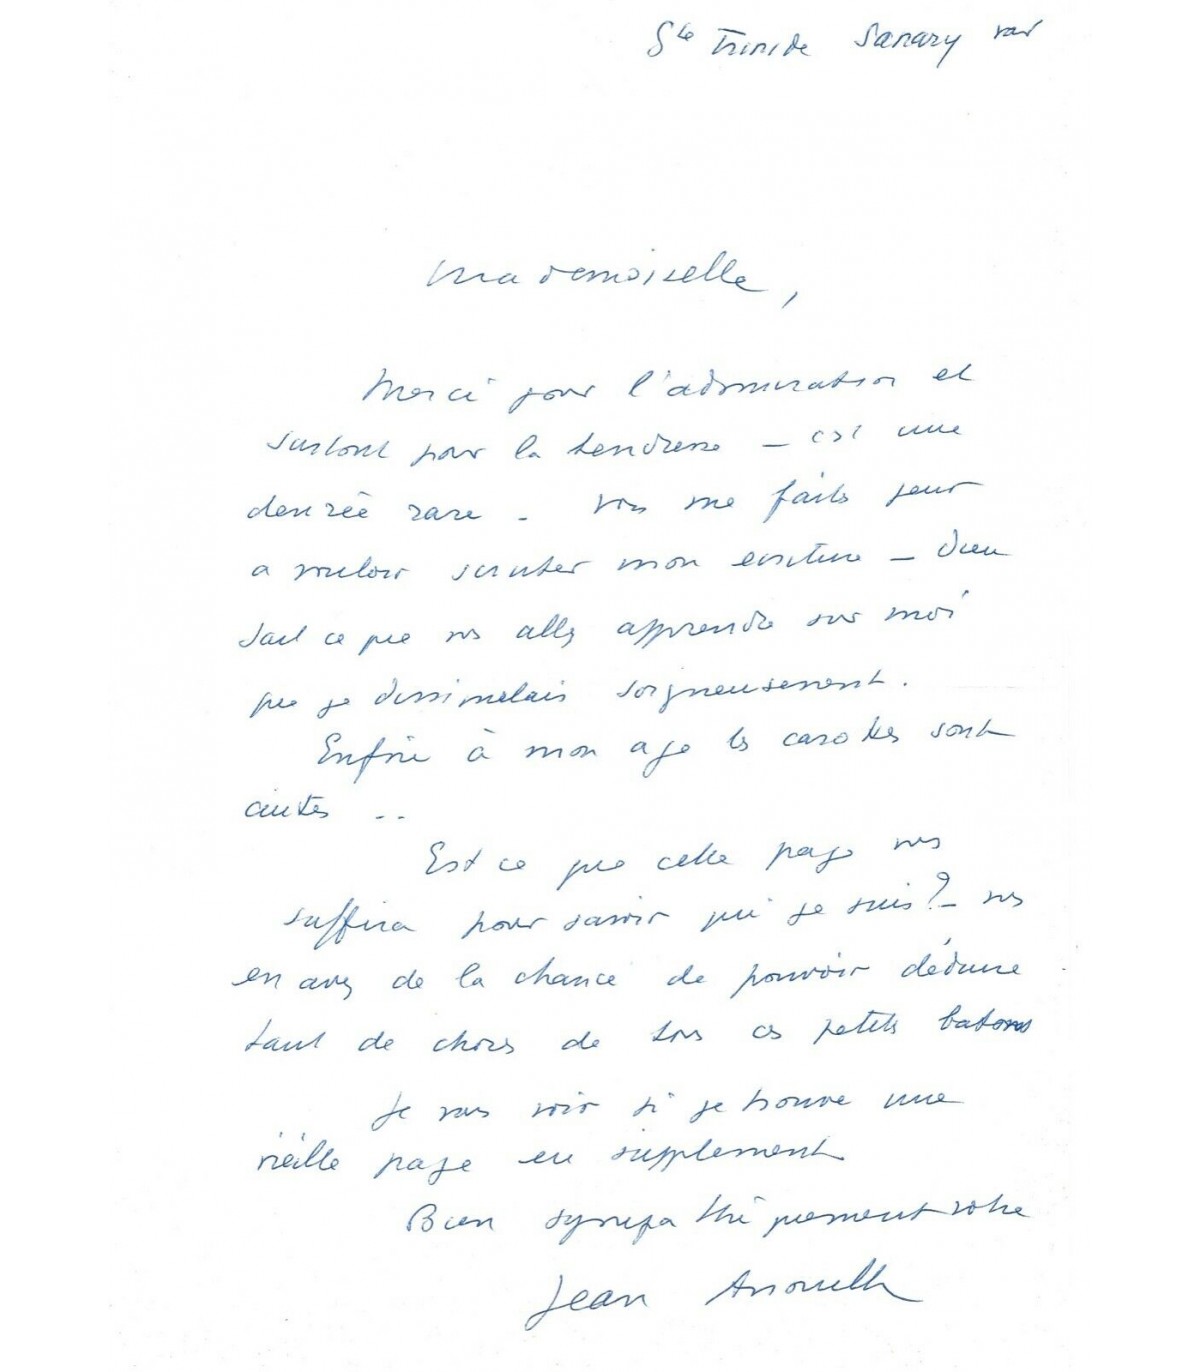 Ste Trinide Sanary var
Mademoiselle,
Merci pour l'admiration et
surtout pour la tendresse - c'est une
denrée rare - Vous me faites peur
a vouloir scruter mon ecriture - Dieu
sait ce que vs allez apprendre sur moi
que je dissimulais soigneusement.
Enfin à mon age les carottes sont
cuites ..
Est ce que cette page vous
suffira pour savoir qui je suis? - vs
en avez de la chance de pouvoir déduire
tant de choses de tous ces petits batons
Je vais voir si je trouve une
vieille page en supplement
Bien sympathiquement votre
Jean Anouilh